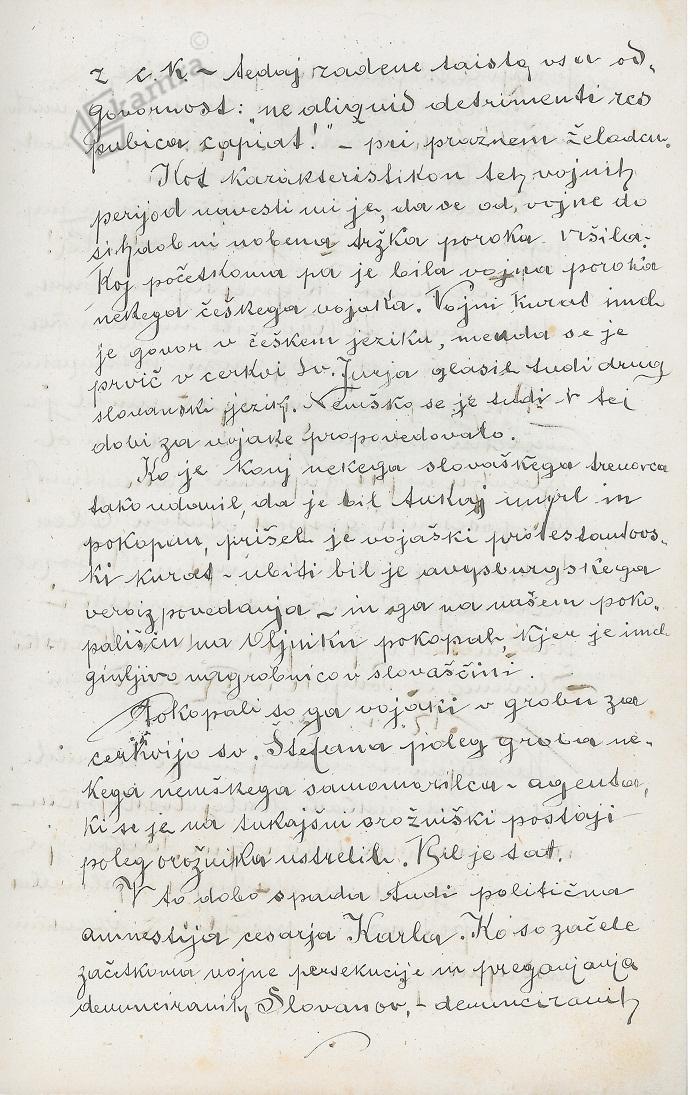 z c. k. – tedaj zadene taisto vsa od-
govornost: "ne aliquid detrimenti res
pubica capiat!" – pri praznem želodcu.
Kot karakteristikon teh vojnih
perijod navesti mi je, da se od vojne do
sihdob ni nobena tržka poroka vršila.
Koj početkoma pa je bila vojna poroka
nekega češkega vojaka. Vojni kurat imel
je govor v češkem jeziku, menda se je
prvič v cerkvi sv. Jurja glasil tudi drug
slovanski jezik. Nemško se je tudi v tej
dobi za vojake propovedovalo.
Ko je konj nekega slovaškega trenovca
tako udaril, da je bil tukaj umrl in
pokopan, prišel je vojaški protestantovs-
ki kurat – ubiti bil je avgsburgskega
veroizpovedanja – in ga na našem poko-
pališču na Vljniku pokopal, kjer je imel
ginljivo nagrobnico v slovaščini.
Pokopali so ga vojaki v grobu za
cerkvijo sv. Štefana poleg groba ne-
kega nemškega samomorilca – agenta,
ki se je na tukajšni orožniški postaji
poleg orožnika ustrelil. Bil je tat.
V to dobo spada tudi politična
amnestija cesarja Karla. Ko so začele
začetkoma vojne persekucije in preganjanja
denunciranih Slovanov, – denunciranih